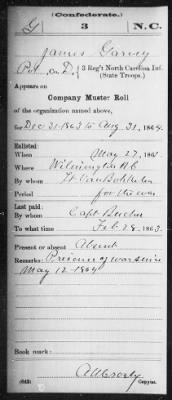 (Confederate.)
G 3 N.C.
James Garvey
Pvt., Co. D, 3 Reg't North Carolina Inf.
(State Troops.)
Appears on
Company Muster Roll
of the organization named above,
for Dec 31 1863 to Aug 31, 1864.
Enlisted:
When May 27, 186
Where Wilmington N.C.
By whom Lt Van Bokkelen
Period for the war
Last paid:
By whom Capt
To what time Feb 28, 1863.
Present or absent Absent
Remarks: Prisoner of war since
May 12 1864
Book mark:
(642) Copyist.